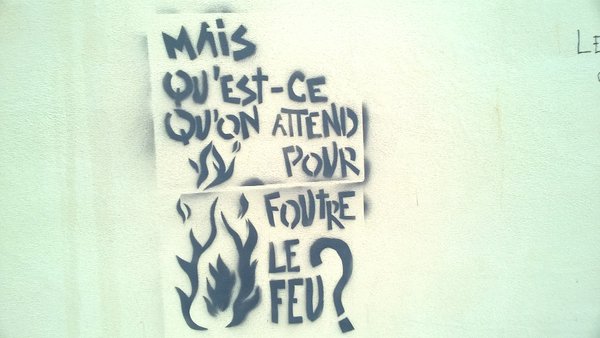 MAIS
QU'EST-CE
QU'ON ATTEND
POUR
FOUTRE
LE
FEU?
LE